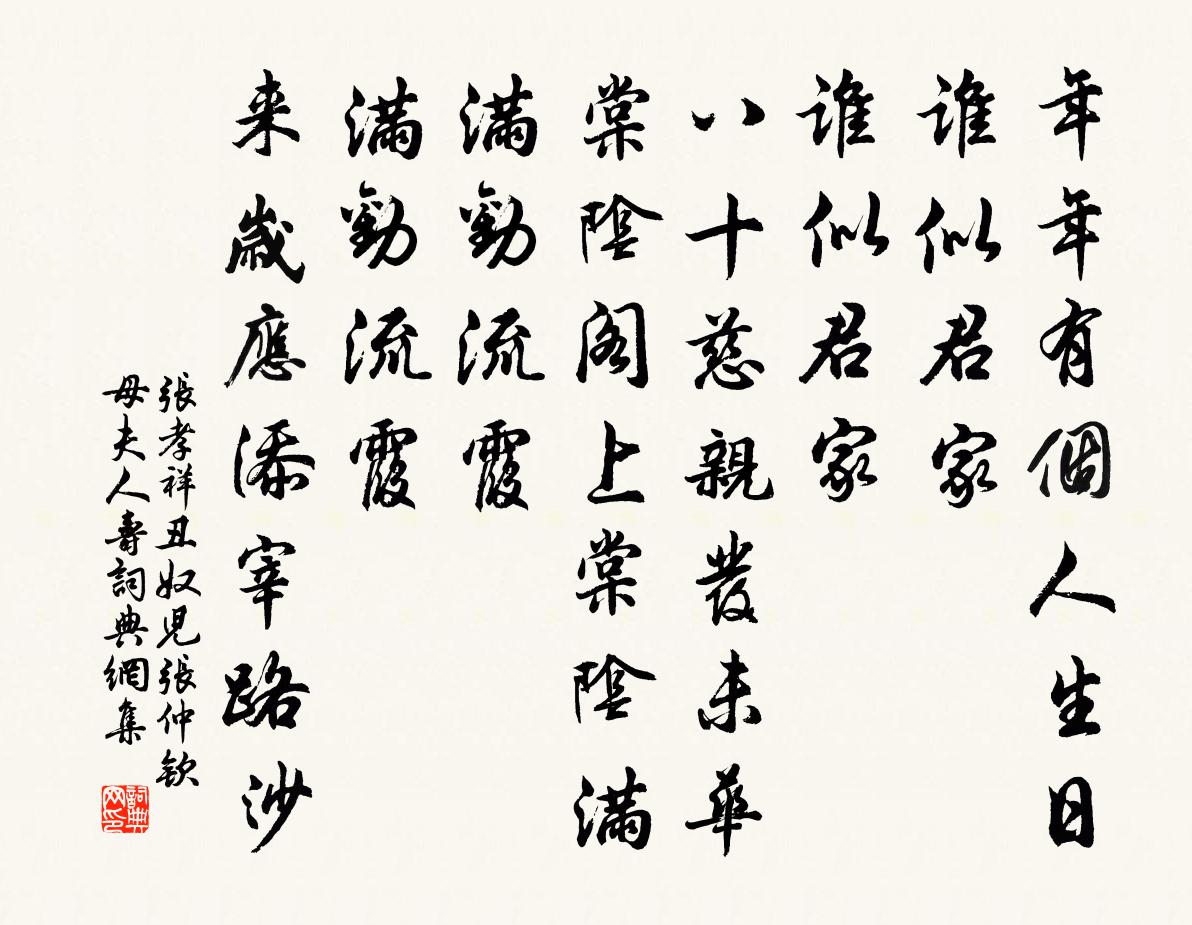 年年有個人生日
誰似君家
誰似君家
八十慈親發未華
棠陰閣上棠陰滿
滿勸流霞
滿勸流霞
来歲應添宰路沙
張孝祥丑奴児張仲欽
母夫人壽詞典網集
詞典网印